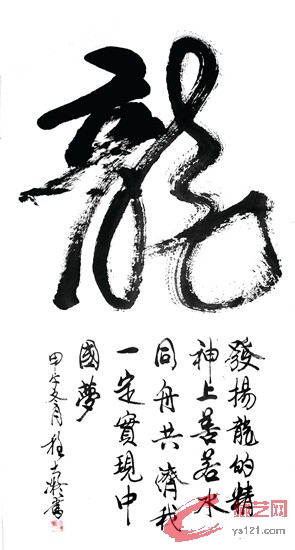 龍
發揚龍的精
神上善若水
同舟共濟我
一定實現中
國夢
甲午冬月
艺网
ys121.com